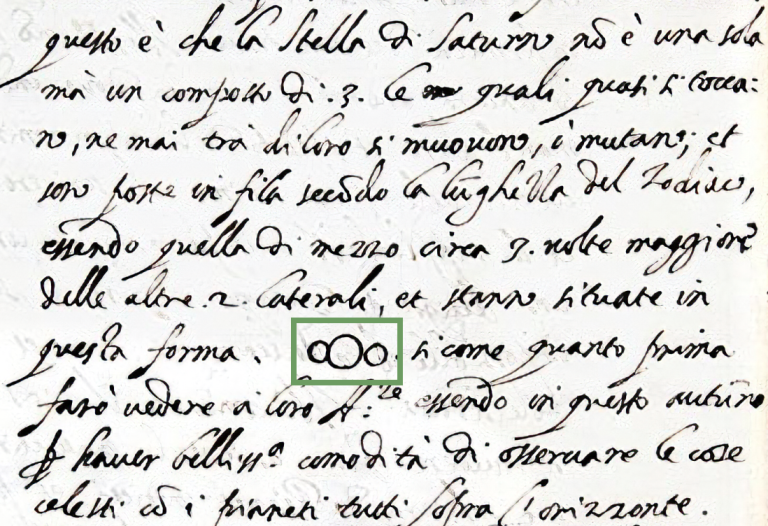 questo è che la stella di Saturno nõ è una sola
mà un composto di .3. le quali quasi si tocca:
no, ne mai trà di loro si muovono, ò mutano; et
sono poste in fila secõdo la lũghezza del zodiaco,
essendo quella di mezzo circa 3. volte maggiore
delle altre .2. laterali, et stanno situate in
questa forma . si come quanto prima
farò vedere à loro A.ze essendo in questo autũno
ꝑ haver bellissᵃ comodità di osservare le cose
celesti cõ i pianeti tutti sopra l'orizzonte.